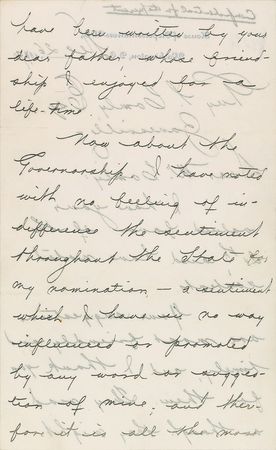 have been written by your
dear father, whose friend-
ship I enjoyed for a
life-time.
Now about the
Governorship. I have noted
with no feeling of in-
difference the sentiment
throughout the State for
my nomination – a sentiment
which I have in no way
influenced or promoted
by any word or sugges-
tion of mine; and ther-
fore it is all the more